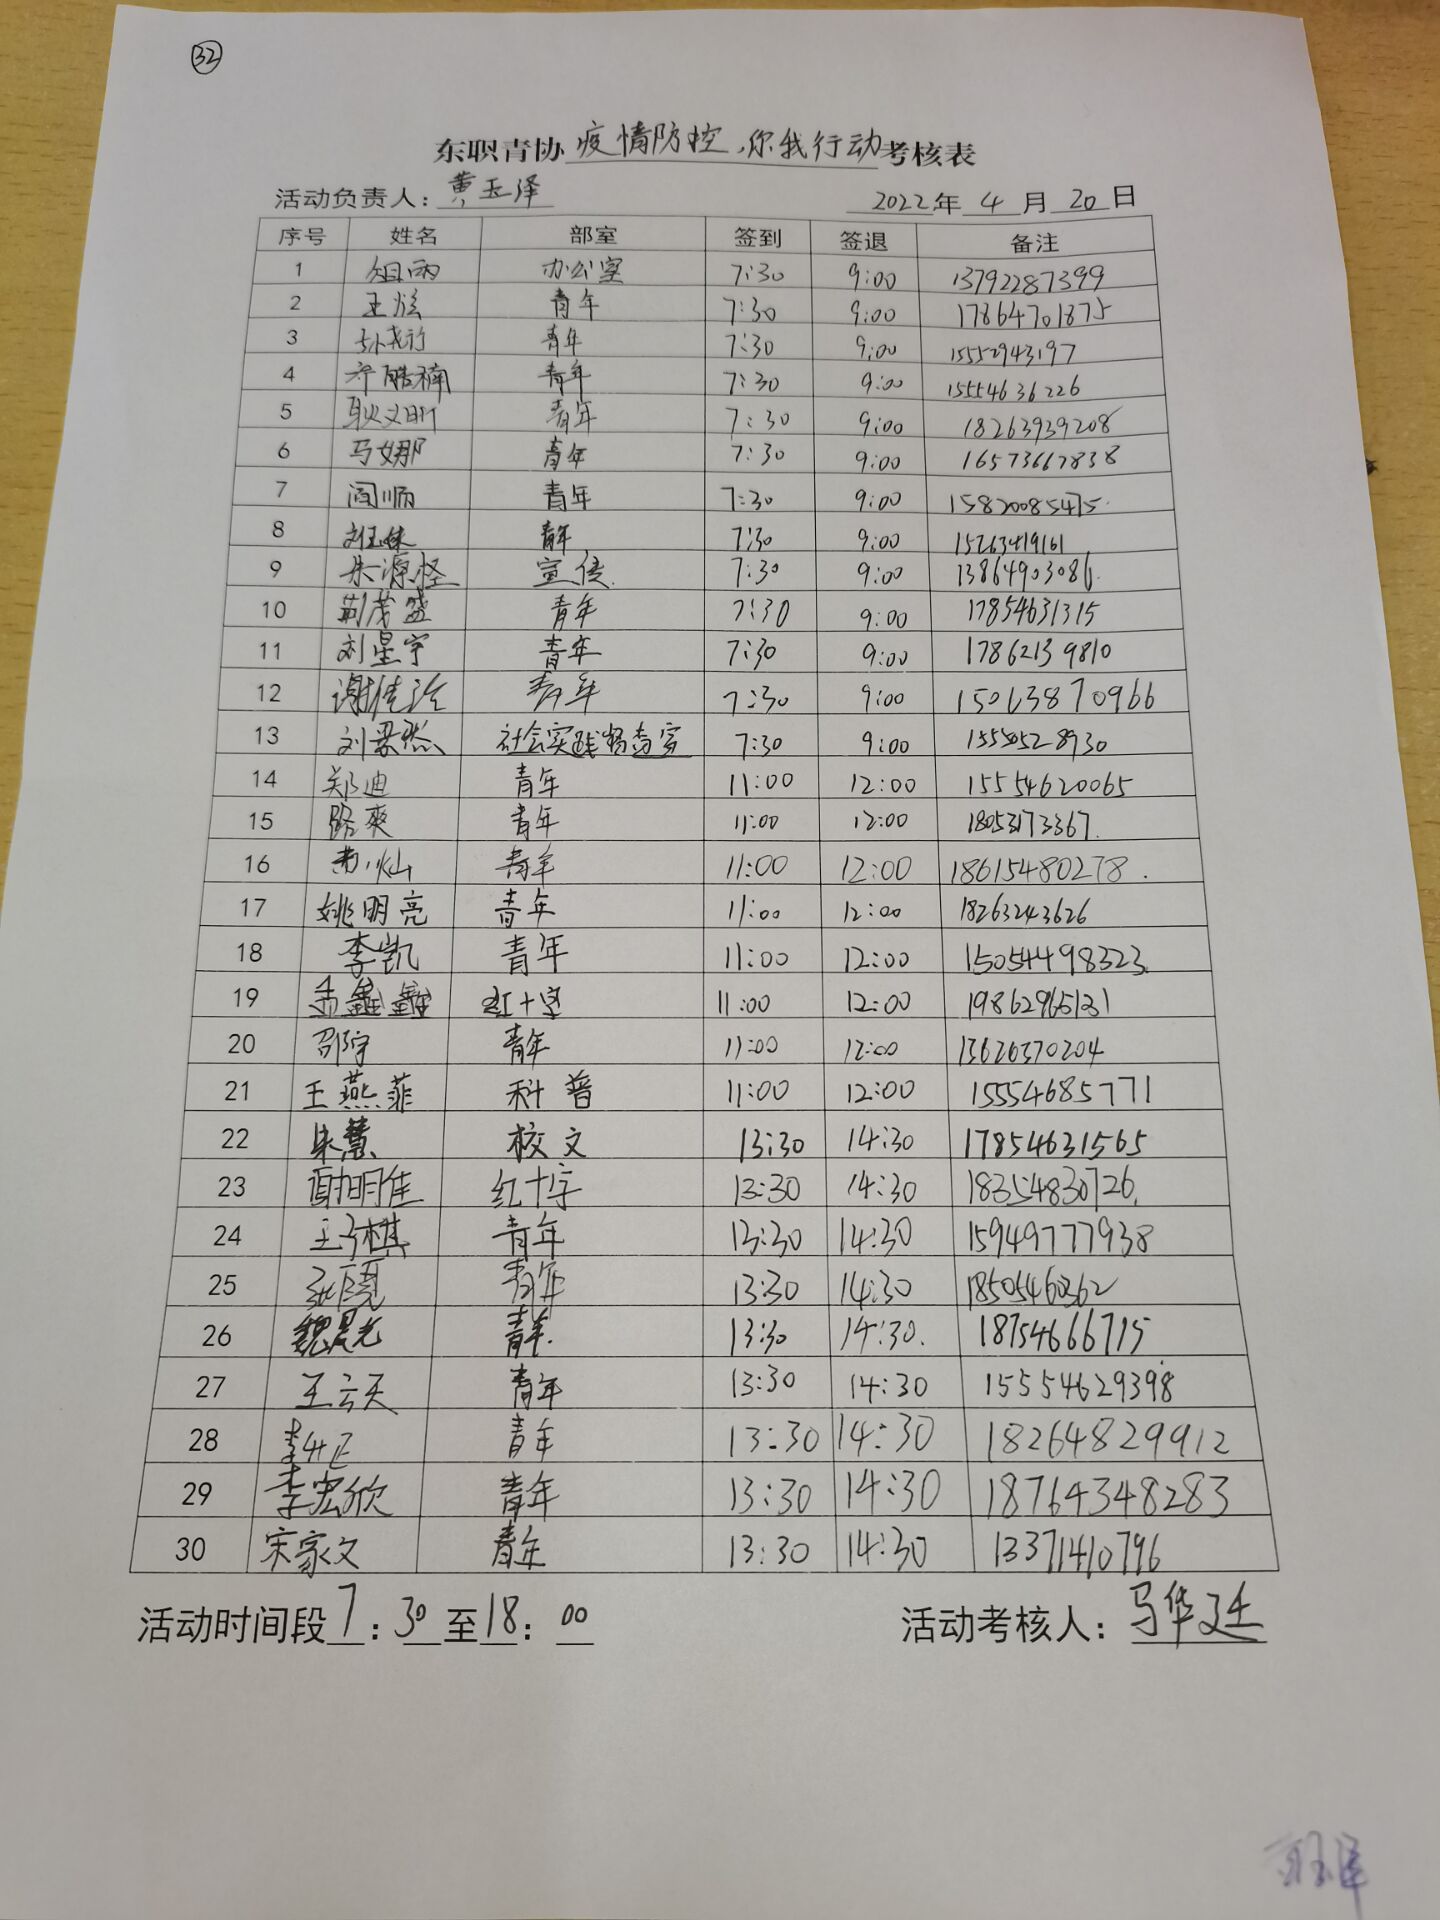 32
东职青协 疫情防控,你我行动 考核表
活动负责人: 黄玉泽 2022年 4 月 20 日
序号 姓名 部室 签到 签退 备注
1 办公室 7:30 9:00 13792287399
2 王炫 青年 7:30 9:00 17864701875
3 青年 7:30 9:00 15552943197
4 青年 7:30 9:00 15554636226
5 耿文昕 青年 7:30 9:00 18263939208
6 马娜 青年 7:30 9:00 16573667838
7 阎顺 青年 7:30 9:00 15820085475
8 刘玉姝 青年 7:30 9:00 15263419161
9 朱源怪 宣传 7:30 9:00 13864903086
10 荆茂盛 青年 7:30 9:00 17854631315
11 刘星宇 青年 7:30 9:00 17862139810
12 谢佳 青年 7:30 9:00 15063870966
13 刘梁然 社会实践 7:30 9:00 15550528930
14 郑迪 青年 11:00 12:00 15554620065
15 路爽 青年 11:00 12:00 18053173367
16 黄灿 青年 11:00 12:00 18615480278
17 姚明亮 青年 11:00 12:00 18263243626
18 李凯 青年 11:00 12:00 15054498323
19 孟鑫鑫 红十字 11:00 12:00 19862965131
20 邵宇 青年 11:00 12:00 13626370204
21 王燕菲 科普 11:00 12:00 15554685771
22 朱慧 校文 13:30 14:30 17854631565
23 明佳 红十字 13:30 14:30 18354830726
24 王子棋 青年 13:30 14:30 15949777938
25 青年 13:30 14:30 18505460362
26 魏晨光 青年 13:30 14:30 18754666715
27 王云天 青年 13:30 14:30 15554629398
28 李正 青年 13:30 14:30 18264829912
29 李宏欣 青年 13:30 14:30 18764348283
30 宋家文 青年 13:30 14:30 13371410796
活动时间段 7:30 至 18:00 活动考核人: 马华廷